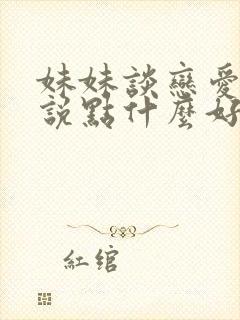 妹妹談戀愛
說點什麼好
紅綰